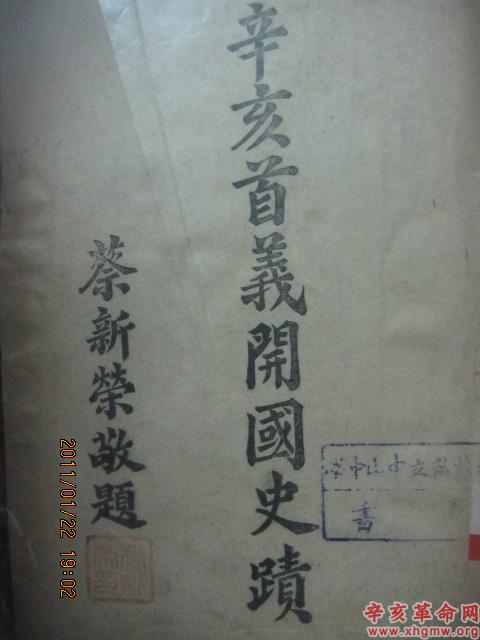 辛亥首義開國史蹟
蔡新榮敬題
2011/01/22 19:02
辛亥革命网
www.xhgmw.org